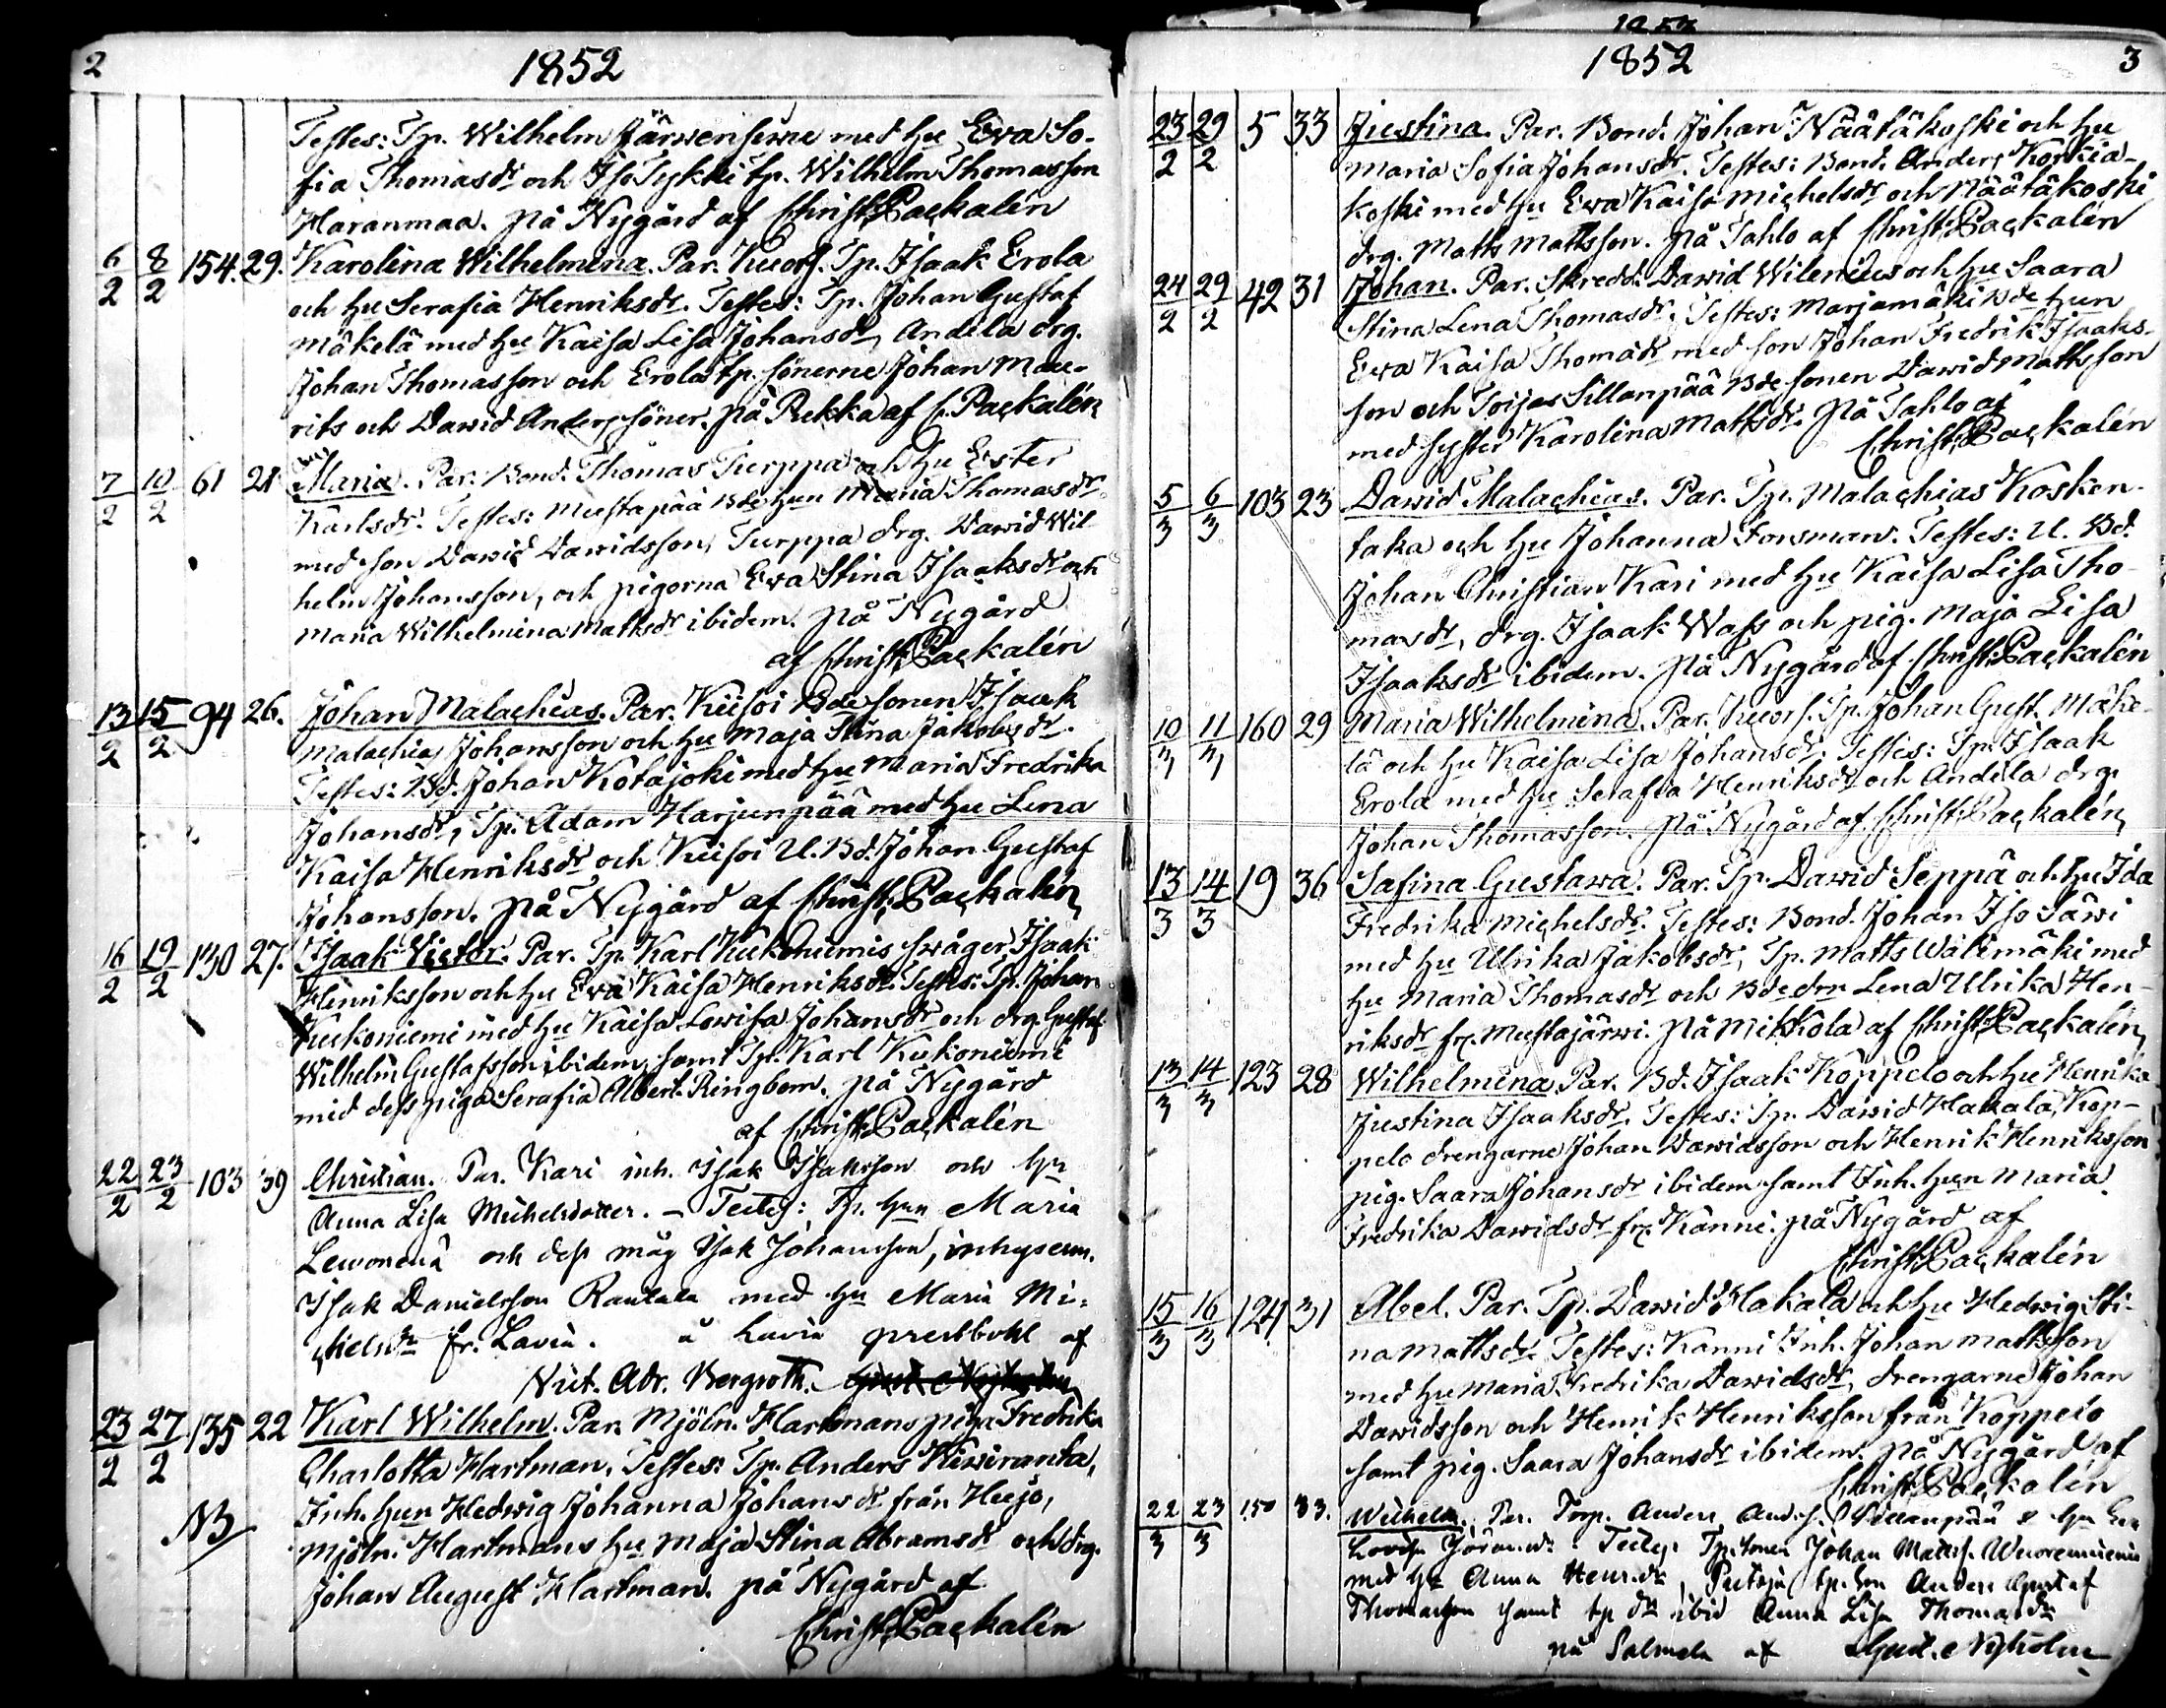 2
1852
Testes: Tp. Wilhelm Järvensiwu med hu Eva So-
fia Thomasdr och Iso Tykki tp. Wilhelm Thomasson
Haranmaa. På Nygård af Christ. Packalén
6/2 8/2 154. 29. Karolina Wilhelmina. Par. Kuorf. Tp. Isaak Erola
och hu Serafia Henriksdr. Testes: Tp. Johan Gustaf
Mäkelä med hu Kaisa Lisa Johansdr, Andela drg.
Johan Thomasson och Erola tp. sönerne Johan Mau-
rits och David Anders söner. på Pukka af C. Packalén
7/2 10/2 61 21 Maria. Par. Bond. Thomas Turppa och hu Ester
Karlsdr. Testes: Mustapää Bde hun Maria Thomasdr
med son David Davidsson, Turppa drg. David Wil-
helm Johansson, och pigorna Eva Stina Isaaksdr och
Maria Wilhelmina Mattsdr ibidem. på Nygård
af Christ. Packalén
13/2 15/2 94 26. Johan Malachias. Par. Kuisoi Bde sonen Isaak
Malachias Johansson och hu Maja Stina Jakobsdr.
Testes: Bd. Johan Kotajoki med hu Maria Fredrika
Johansdr, Tp. Adam Harjunpää med hu Lena
Kaisa Henriksdr och Kuisoi U. Bd. Johan Gustaf
Johansson. på Nygård af Christ. Packalén
16/2 19/2 130 27. Isaak Victor. Par. Tp. Karl Kukoniemis swåger Isaak
Henriksson och hu Eva Kaisa Henriksdr. Testes: Tp. Johan
Kukoniemi med hu Kaisa Lovisa Johansdr och drg. Gustaf
Wilhelm Gustafsson ibidem, samt Tp. Karl Kukoniemi
med dess piga Serafia Albert. Ringbom. på Nygård
af Christ. Packalén
22/2 23/2 103 39 Christian. Par. Kari inh. Isak Isaksson och hu
Anna Lisa Michelsdotter. – Testes: Tp. hun Maria
och dess måg Isak Johansson, inhysesm.
Isak Danielsson Rautala med hu Maria Mi-
chelsdr fr. Lavia. å Lavia prestbohl af
Nut. Adr. Bergroth.
23/2 27/2 135 22 Karl Wilhelm. Par. Mjöln. Hartmans piga Fredrika
Charlotta Hartman. Testes: Tp. Anders Kiviranta,
Inh. hun Hedwig Johanna Johansdr från Hujo,
NB
Mjöln. Hartmans hu Maja Stina Abramsdr och drg.
Johan August Hartman. på Nygård af
Christ. Packalén
1852
3
23/2 29/2 5 33 Justina. Par. Bond. Johan Näätäkoski och hu
Maria Sofia Johansdr. Testes: Bond. Anders Korkia-
koski med hu Eva Kaisa Michelsdr och Näätäkoski
drg. Matts Mattsson. på Sahlo af Christ. Packalén
24/2 29/2 42 31 Johan. Par. Skredd. David Wilenius och hu Saara
Stina Lena Thomasdr. Testes: Marjamäki Bde hun
Eva Kaisa Thomasdr med son Johan Fredrik Isaaks-
son och Toijas Sillanpää Bde sonen David Mattsson
med syster Karolina Mattsdr. på Sahlo af
Christ. Packalén
5/3 6/3 103 23 David Malachias. Par. Tp. Malachias Kosken-
taka och hu Johanna Forsman. Testes: U. Bd.
Johan Christian Kari med hu Kaisa Lisa Tho-
masdr, drg. Isaak Wass och pig. Maja Lisa
Isaaksdr ibidem. på Nygård af Christ. Packalén
10/3 11/3 160 29 Maria Wilhelmina. Par. Kuorf. Tp. Johan Gust. Mäke-
lä och hu Kaisa Lisa Johansdr. Testes: Tp. Isaak
Erola med hu Serafia Henriksdr och Andela drg.
Johan Thomasson. På Nygård af Christ. Packalén
13/3 14/3 19 36 Safina Gustawa. Par. Tp. David Seppä och hu Ida
Fredrika Michelsdr. Testes: Bond. Johan Iso Säwi
med hu Ulrika Jakobsdr, Tp. Matts Wälimäki med
hu Maria Thomasdr och Bde dm Lena Ulrika Hen-
riksdr fr. Mustajärwi. På Mikkola af Christ. Packalén
13/3 14/3 123 28 Wilhelmina. Par. Bd. Isaak Koppelo och hu Henrika
Justina Isaaksdr. Testes: Tp. David Hakala, Kop-
pelo drengarne Johan Davidsson och Henrik Henriksson
pig. Saara Johansdr ibidem samt Inh. hun Maria
Fredrika Davidsdr fr. Kanni. på Nygård af
Christ. Packalén
15/3 16/3 124 31 Abel. Par. Tp. David Hakala och hu Hedwig Sti-
na Mattsdr. Testes: Kanni Inh. Johan Mattsson
med hu Maria Fredrika Davidsdr, drengarne Johan
Davidsson och Henrik Henriksson från Koppelo
samt pig. Saara Johansdr ibidem. på Nygård af
Christ. Packalén
22/3 23/3 150 33. Wilhelm. Par. Torp. Anders And.s. Sillanpää & hu Eva
Lovisa Göransdr. Testes Tp. sonen Johan Matts.
med hu Anna Henr.dr, tp. son Anders Gustaf
Thomasson samt tp dr ibid Anna Lisa Thomasdr
på Salmela af Gust. Nyholm